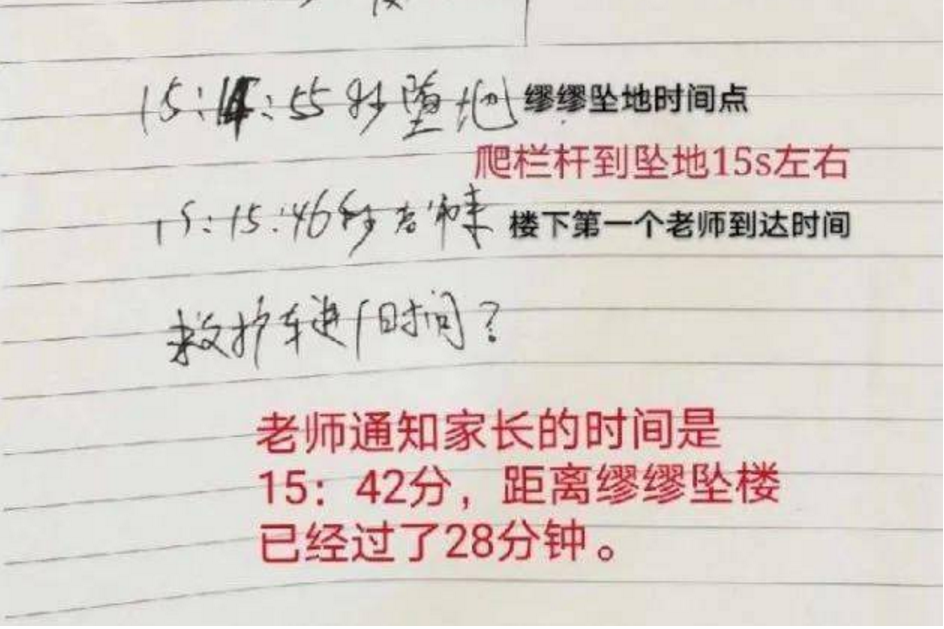 15:14:55秒堕地 缪缪坠地时间点
爬栏杆到坠地15s左右
15:15:46秒老师来 楼下第一个老师到达时间
救护车进门时间?
老师通知家长的时间是
15：42分，距离缪缪坠楼
已经过了28分钟。